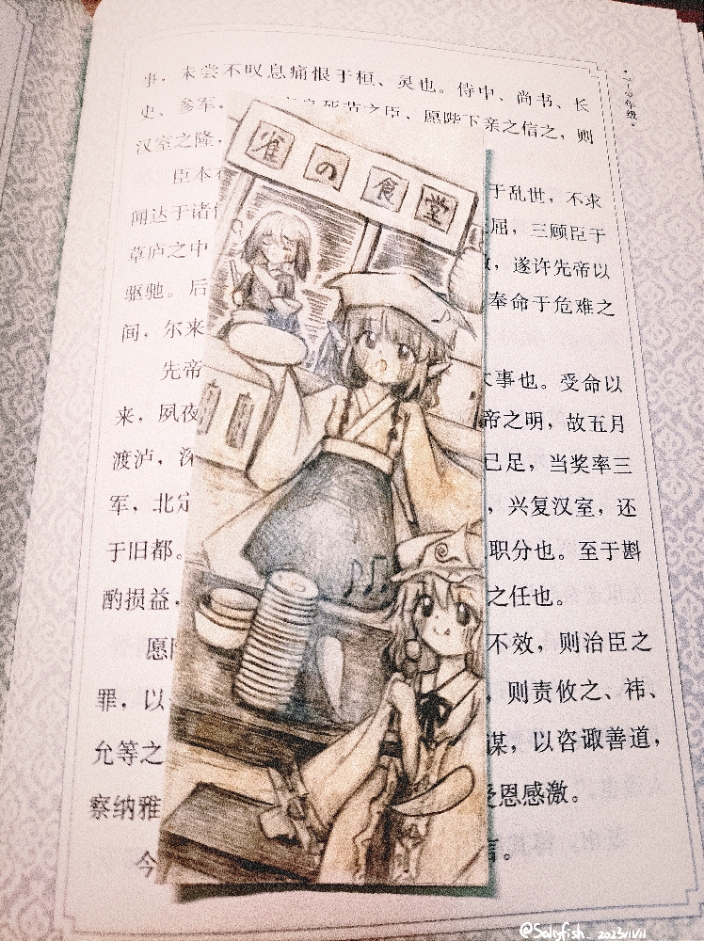 事，未尝不叹息痛恨于桓、灵也。侍中、尚书、长
史、参军， 之臣，愿陛下亲之信之，则
汉室之隆，
雀の食堂
臣本 于乱世，不求
闻达于诸 屈，三顾臣于
草庐之中 ，遂许先帝以
驱驰。后 奉命于危难之
间，尔来
先帝 大事也。受命以
来，夙夜 帝之明，故五月
渡泸，深 已足，当奖率三
军，北定 ，兴复汉室，还
于旧都。 职分也。至于斟
酌损益， 之任也。
愿 不效，则治臣之
罪，以 ，则责攸之、祎、
允等之 谋，以咨诹善道，
察纳雅 受恩感激。
今 言。
@Salyfish_ 2023/11/11